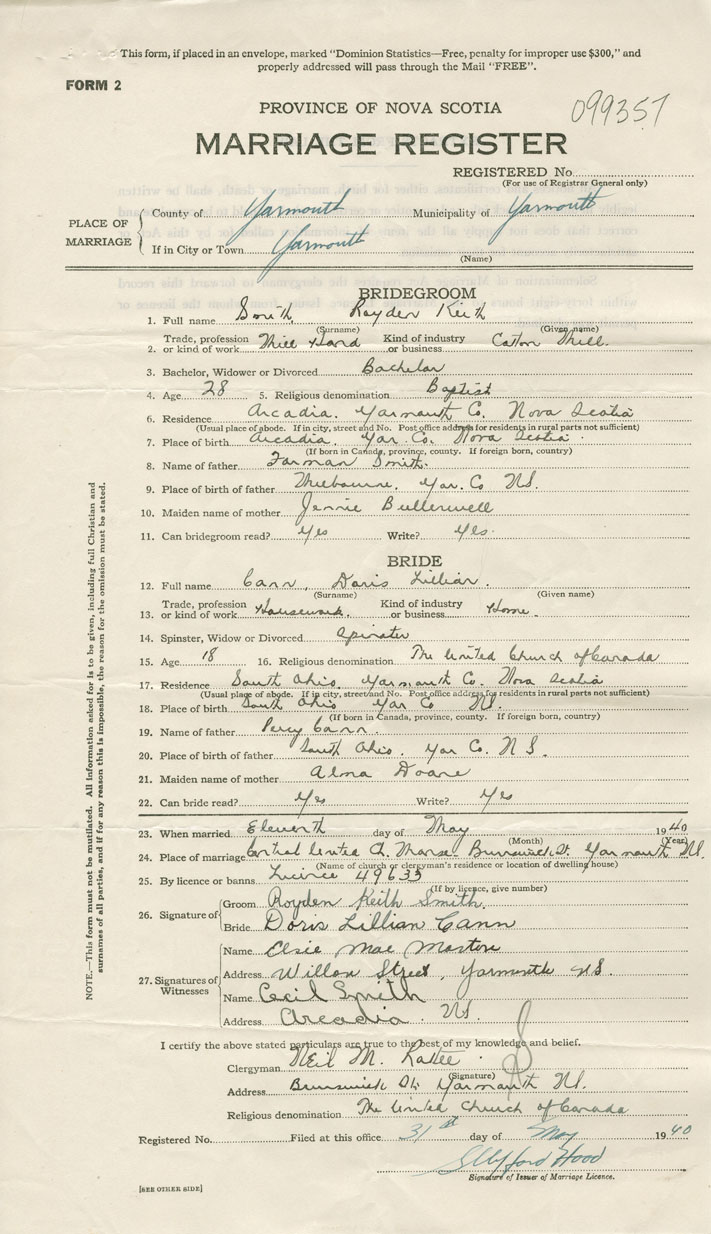 This form, if placed in an envelope, marked "Dominion Statistics—Free, penalty for improper use $300," and
properly addressed will pass through the Mail "FREE".
FORM 2
099357
PROVINCE OF NOVA SCOTIA
MARRIAGE REGISTER
REGISTERED No.
(For use of Registrar General only)
PLACE OF MARRIAGE
County of Yarmouth Municipality of Yarmouth
If in City or Town Yarmouth
(Name)
BRIDEGROOM
1. Full name Smith, Royden Keith
(Surname) (Given name)
2. Trade, profession or kind of work Mill Hand Kind of industry or business Cotton Mill.
3. Bachelor, Widower or Divorced Bachelor
4. Age 28 5. Religious denomination Baptist
6. Residence Arcadia. Yarmouth Co. Nova Scotia
(Usual place of abode. If in city, street and No. Post office address for residents in rural parts not sufficient)
7. Place of birth Arcadia. Yar. Co. Nova Scotia.
(If born in Canada, province, county. If foreign born, country)
8. Name of father Farman Smith.
9. Place of birth of father Melbourne. Yar. Co NS.
10. Maiden name of mother Jennie
11. Can bridegroom read? Yes Write? Yes.
BRIDE
12. Full name Cann, Doris Lillian.
(Surname) (Given name)
13. Trade, profession or kind of work Housework. Kind of industry or business Home.
14. Spinster, Widow or Divorced
15. Age 18 16. Religious denomination The United Church of Canada
17. Residence South Ohio. Yarmouth Co. Nova Scotia
(Usual place of abode. If in city, street and No. Post office address for residents in rural parts not sufficient)
18. Place of birth South Ohio Yar Co NS.
(If born in Canada, province, county. If foreign born, country)
19. Name of father Percy Cann.
20. Place of birth of father South Ohio. Yar Co. N S.
21. Maiden name of mother Alma Doane
22. Can bride read? Yes Write? Yes
23. When married Eleventh day of May 1940
(Month) (Year)
24. Place of marriage Central United Ch. Manse Brunswick St. Yarmouth NS.
(Name of church or clergyman's residence or location of dwelling house)
25. By licence or banns 49633
(If by licence, give number)
26. Signature of
Groom Royden Keith Smith.
Bride Doris Lillian Cann
27. Signatures of Witnesses
Name Elsie Mae
Address Willow Street, Yarmouth NS.
Name Cecil Smith
Address Arcadia. NS.
I certify the above stated particulars are true to the best of my knowledge and belief.
Clergyman Neil M.
(Signature)
Address Brunswick St. Yarmouth NS.
Religious denomination The United Church of Canada
Registered No. Filed at this office 31st day of May 1940
Hood
Signature of Issuer of Marriage Licence.
[SEE OTHER SIDE]
NOTE.—This form must not be mutilated. All information asked for is to be given, including full Christian and
surnames of all parties, and if for any reason this is impossible, the reason for the omission must be stated.